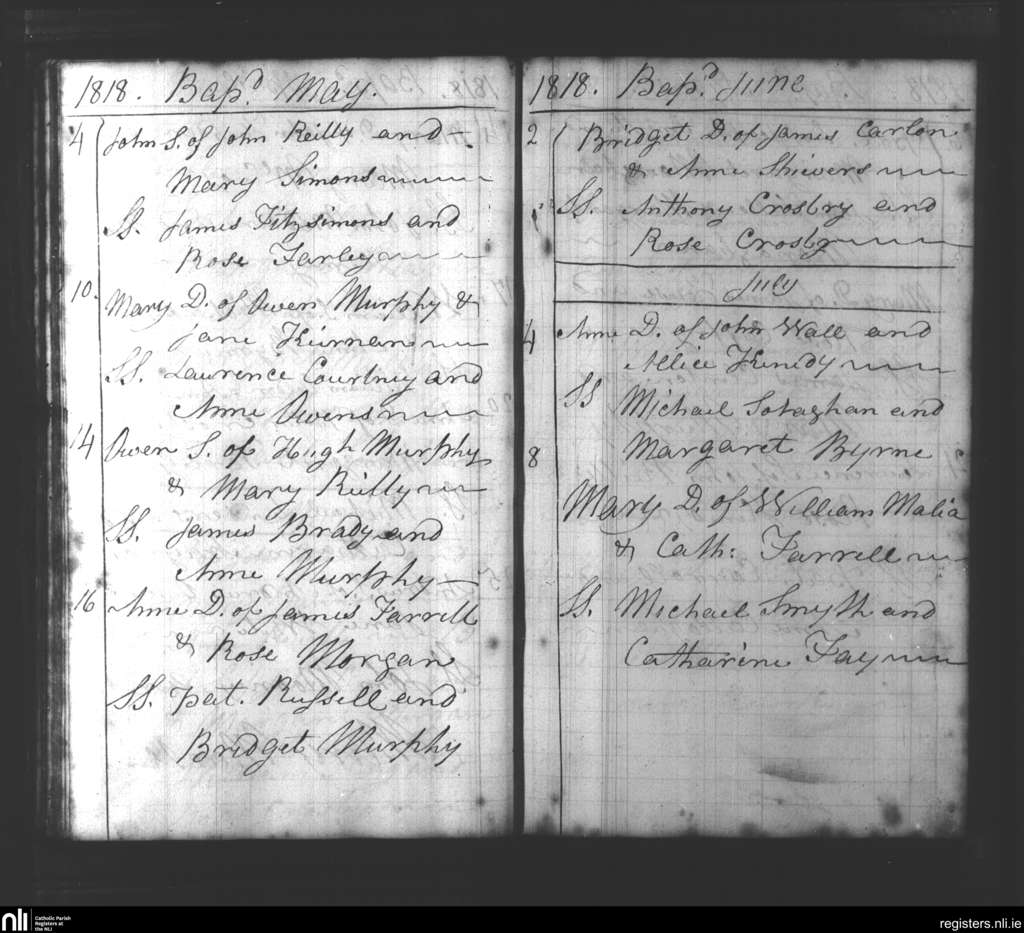 1818. Bapd. May.
4 John S. of John Reilly and
Mary Simons
SS. James Fitzsimons and
Rose Farley
10. Mary D. of Owen Murphy &
Jane Kiernan
SS. Laurence Courtney and
Anne Owens
14 Owen S. of Hugh Murphy
& Mary Reilly
SS. James Brady and
Anne Murphy
16 Anne D. of James Farrell
& Rose Morgan
SS. Pat. Russell and
Bridget Murphy
1818. Bapd. June
2 Bridget D. of James Carlon
& Anne Shievers
SS. Anthony Crosbry and
Rose Crosby
July
4 Anne D. of John Wall and
Allice Kenedy
SS Michael Sotaghan and
Margaret Byrne
8
Mary D. of William Malia
& Cath: Farrell
SS. Michael Smyth and
Catharine Fay
nli
Catholic Parish
Registers at
the NLI
registers.nli.ie